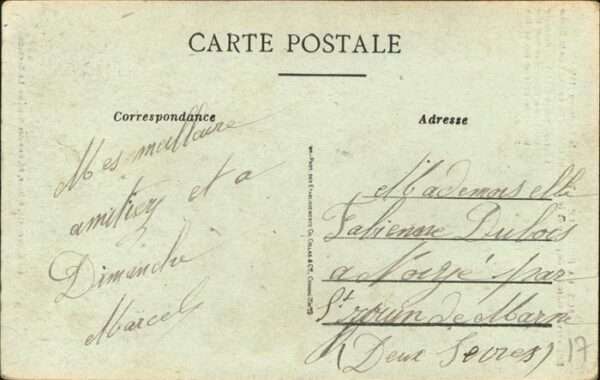 CARTE POSTALE
Correspondance
Mes meillaure
amitiez et a
Dimanche
Marcel
Adresse
Mademoiselle
Fabienne Dubois
a Noizé par
St Jouin de Marne
(Deux Sevres)
17